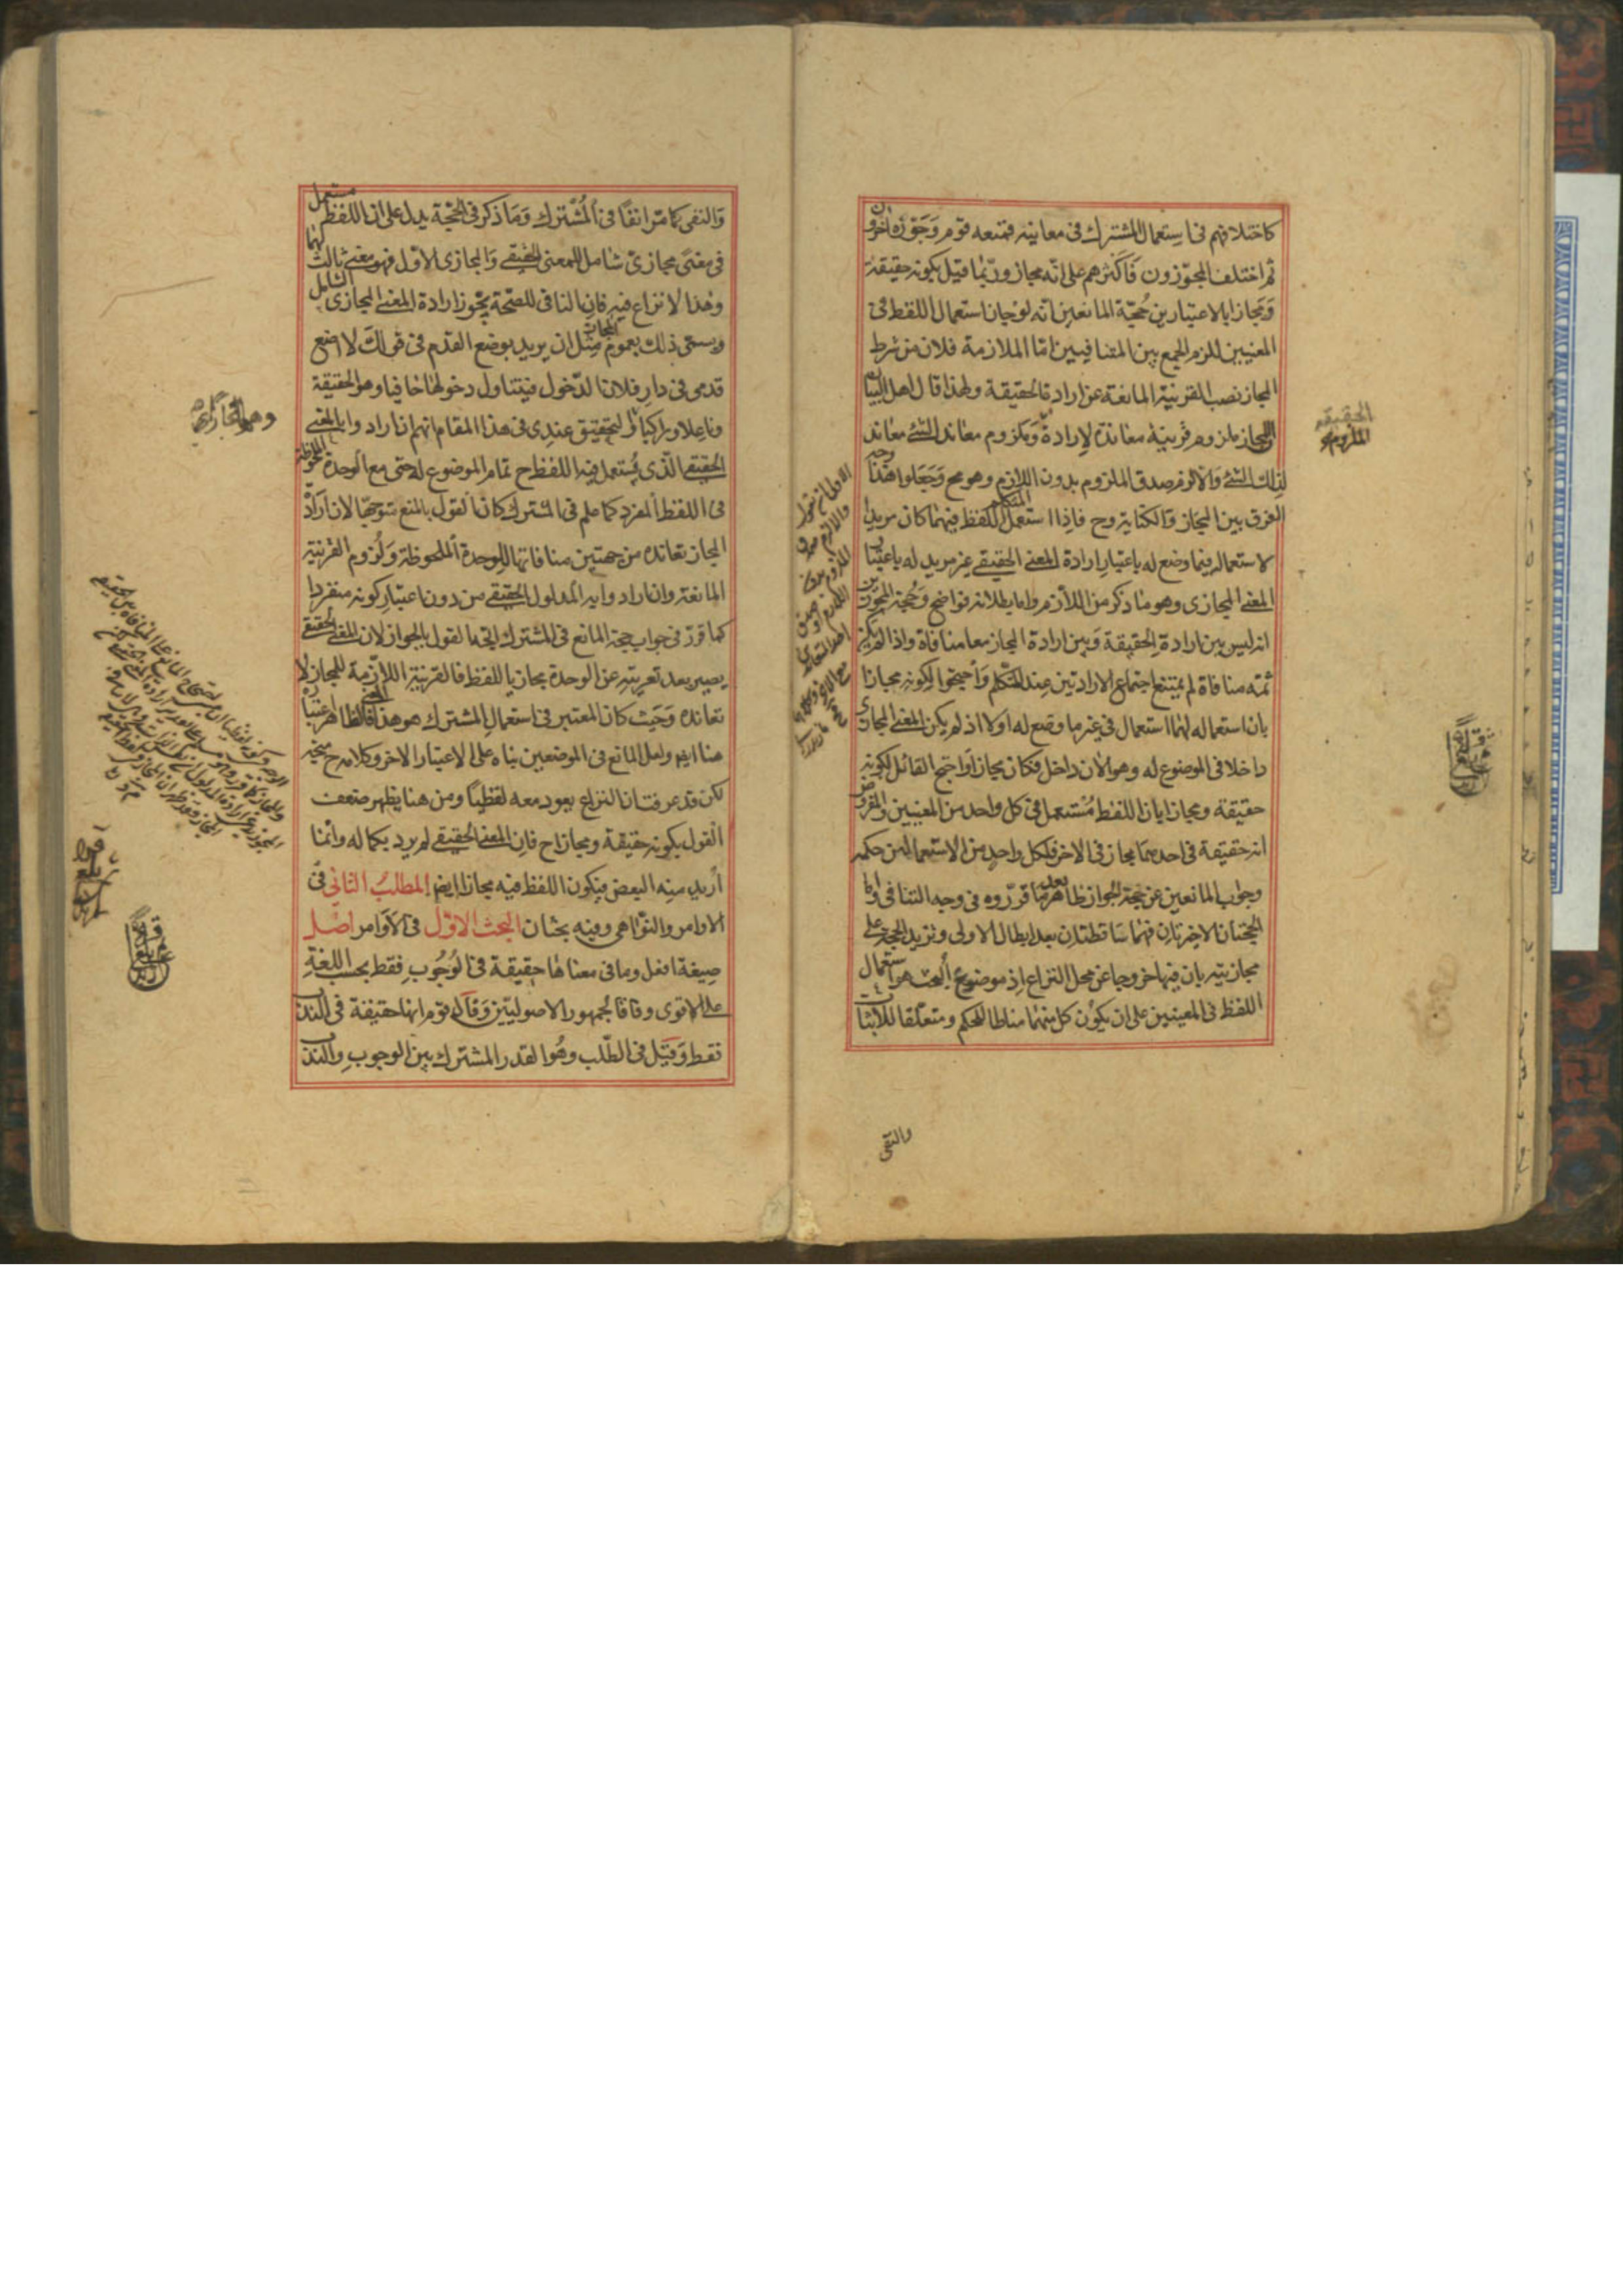 كاختلافهم في استعمال المشترك في معانيه فمنعه قوم وجوزه اخرون
ثم اختلف المجوزون فاكثرهم على انه مجاز وربما قيل بكونه حقيقة
ومجازا بالاعتبارين حجة المانعين انه لو جاز استعمال اللفظ في
المعنيين للزم الجمع بين المتنافيين اما الملازمة فلان من شرط
المجاز نصب القرينة المانعة عن ارادة الحقيقة ولهذا قال اهل البيان
ان المجاز ملزوم قرينة معاندة لارادة الحقيقة وملزوم معاند الشئ معاند
لذلك الشئ والا لزم صدق الملزوم بدون اللازم وهو مح وجعلوا هذا وجه
الفرق بين المجاز والكناية وح فاذا استعمل المتكلم اللفظ فيهما كان مريدا
لاستعماله فيما وضع له باعتبار ارادة المعنى الحقيقي غير مريد له باعتبار
المعنى المجازي وهو ما ذكر من اللازم واما بطلانه فواضح وحجة المجوزين
انه ليس بين ارادة الحقيقة وبين ارادة المجاز معا منافاة واذا لم يكن
ثمه منافاة لم يمتنع اجتماع الارادتين عند المتكلم واحتجوا لكونه مجازا
بان استعماله لهما استعمال في غير ما وضع له اولا اذ لم يكن المعنى المجازي
داخلا في الموضوع له وهو الان داخل فكان مجازا واحتج القائل لكونه
حقيقة ومجازا بان اللفظ مستعمل في كل واحد من المعنيين والمفروض
انه حقيقة في احدهما مجاز في الاخر فلكل واحد من الاستعمالين حكمه
وجواب المانعين عن حجة الجواز ظاهر بعد ما قرروه في وجه التنافي واما
الحجتان الاخيرتان فهما ساقطتان بعد ابطال الاولى ونزيد الحجة على
مجازيته بان فيها خروجا عن محل النزاع اذ موضوع البحث هو استعمال
اللفظ في المعنيين على ان يكون كل منهما مناطا للحكم ومتعلقا للاثبات
والنفي
الحقيقة
الملزوم
والنفي كما مر انفا في المشترك وما ذكر في الحجة يدل على ان اللفظ مستعمل
في معنى مجازي شامل للمعنى الحقيقي والمجازي الاول فهو معنى ثالث لهما
وهذا لا نزاع فيه فان النافي للصحة يجوز ارادة المعنى المجازي الشامل
ويسمى ذلك بعموم المجاز مثل ان يريد بوضع القدم في قولك لا اضع
قدمي في دار فلان الدخول فيتناول دخولها حافيا وهو الحقيقة
وناعلا وراكبا والتحقيق عندي في هذا المقام انهم ان ارادوا بالمعنى
الحقيقي الذي يستعمل فيه اللفظ ح تمام الموضوع له حتى مع الوحدة الملحوظة
في اللفظ المفرد كما علم في المشترك كان القول بالمنع متوجها لان ارادة
المجاز تعانده من جهتين منافاتها للوحدة الملحوظة ولزوم القرينة
المانعة وان ارادوا به المدلول الحقيقي من دون اعتبار كونه منفردا
كما قرر في جواب حجة المانع في المشترك اتجه القول بالجواز لان المعنى الحقيقي
يصير بعد تعريته عن الوحدة مجازيا للفظ فالقرينة اللازمة للمجاز لا
تعانده وحيث كان المعتبر في استعمال المشترك هو هذا المعنى فالظاهر اعتباره
هنا ايضا ولعل المانع في الموضعين بناه على الاعتبار الاخر وكلامه ح متجه
لكن قد عرفت ان النزاع يعود معه لفظيا ومن هنا يظهر ضعف
القول بكونه حقيقة ومجازا ح فان المعنى الحقيقي لم يرد بكماله وانما
اريد منه البعض فيكون اللفظ فيه مجازا ايضا المطلب الثاني في
الاوامر والنواهي وفيه بحثان البحث الاول في الاوامر اصل
صيغة افعل وما في معناها حقيقة في الوجوب فقط بحسب اللغة
على الاقوى وفاقا لجمهور الاصوليين وقال قوم انها حقيقة في الندب
فقط وقيل في الطلب وهو القدر المشترك بين الوجوب والندب